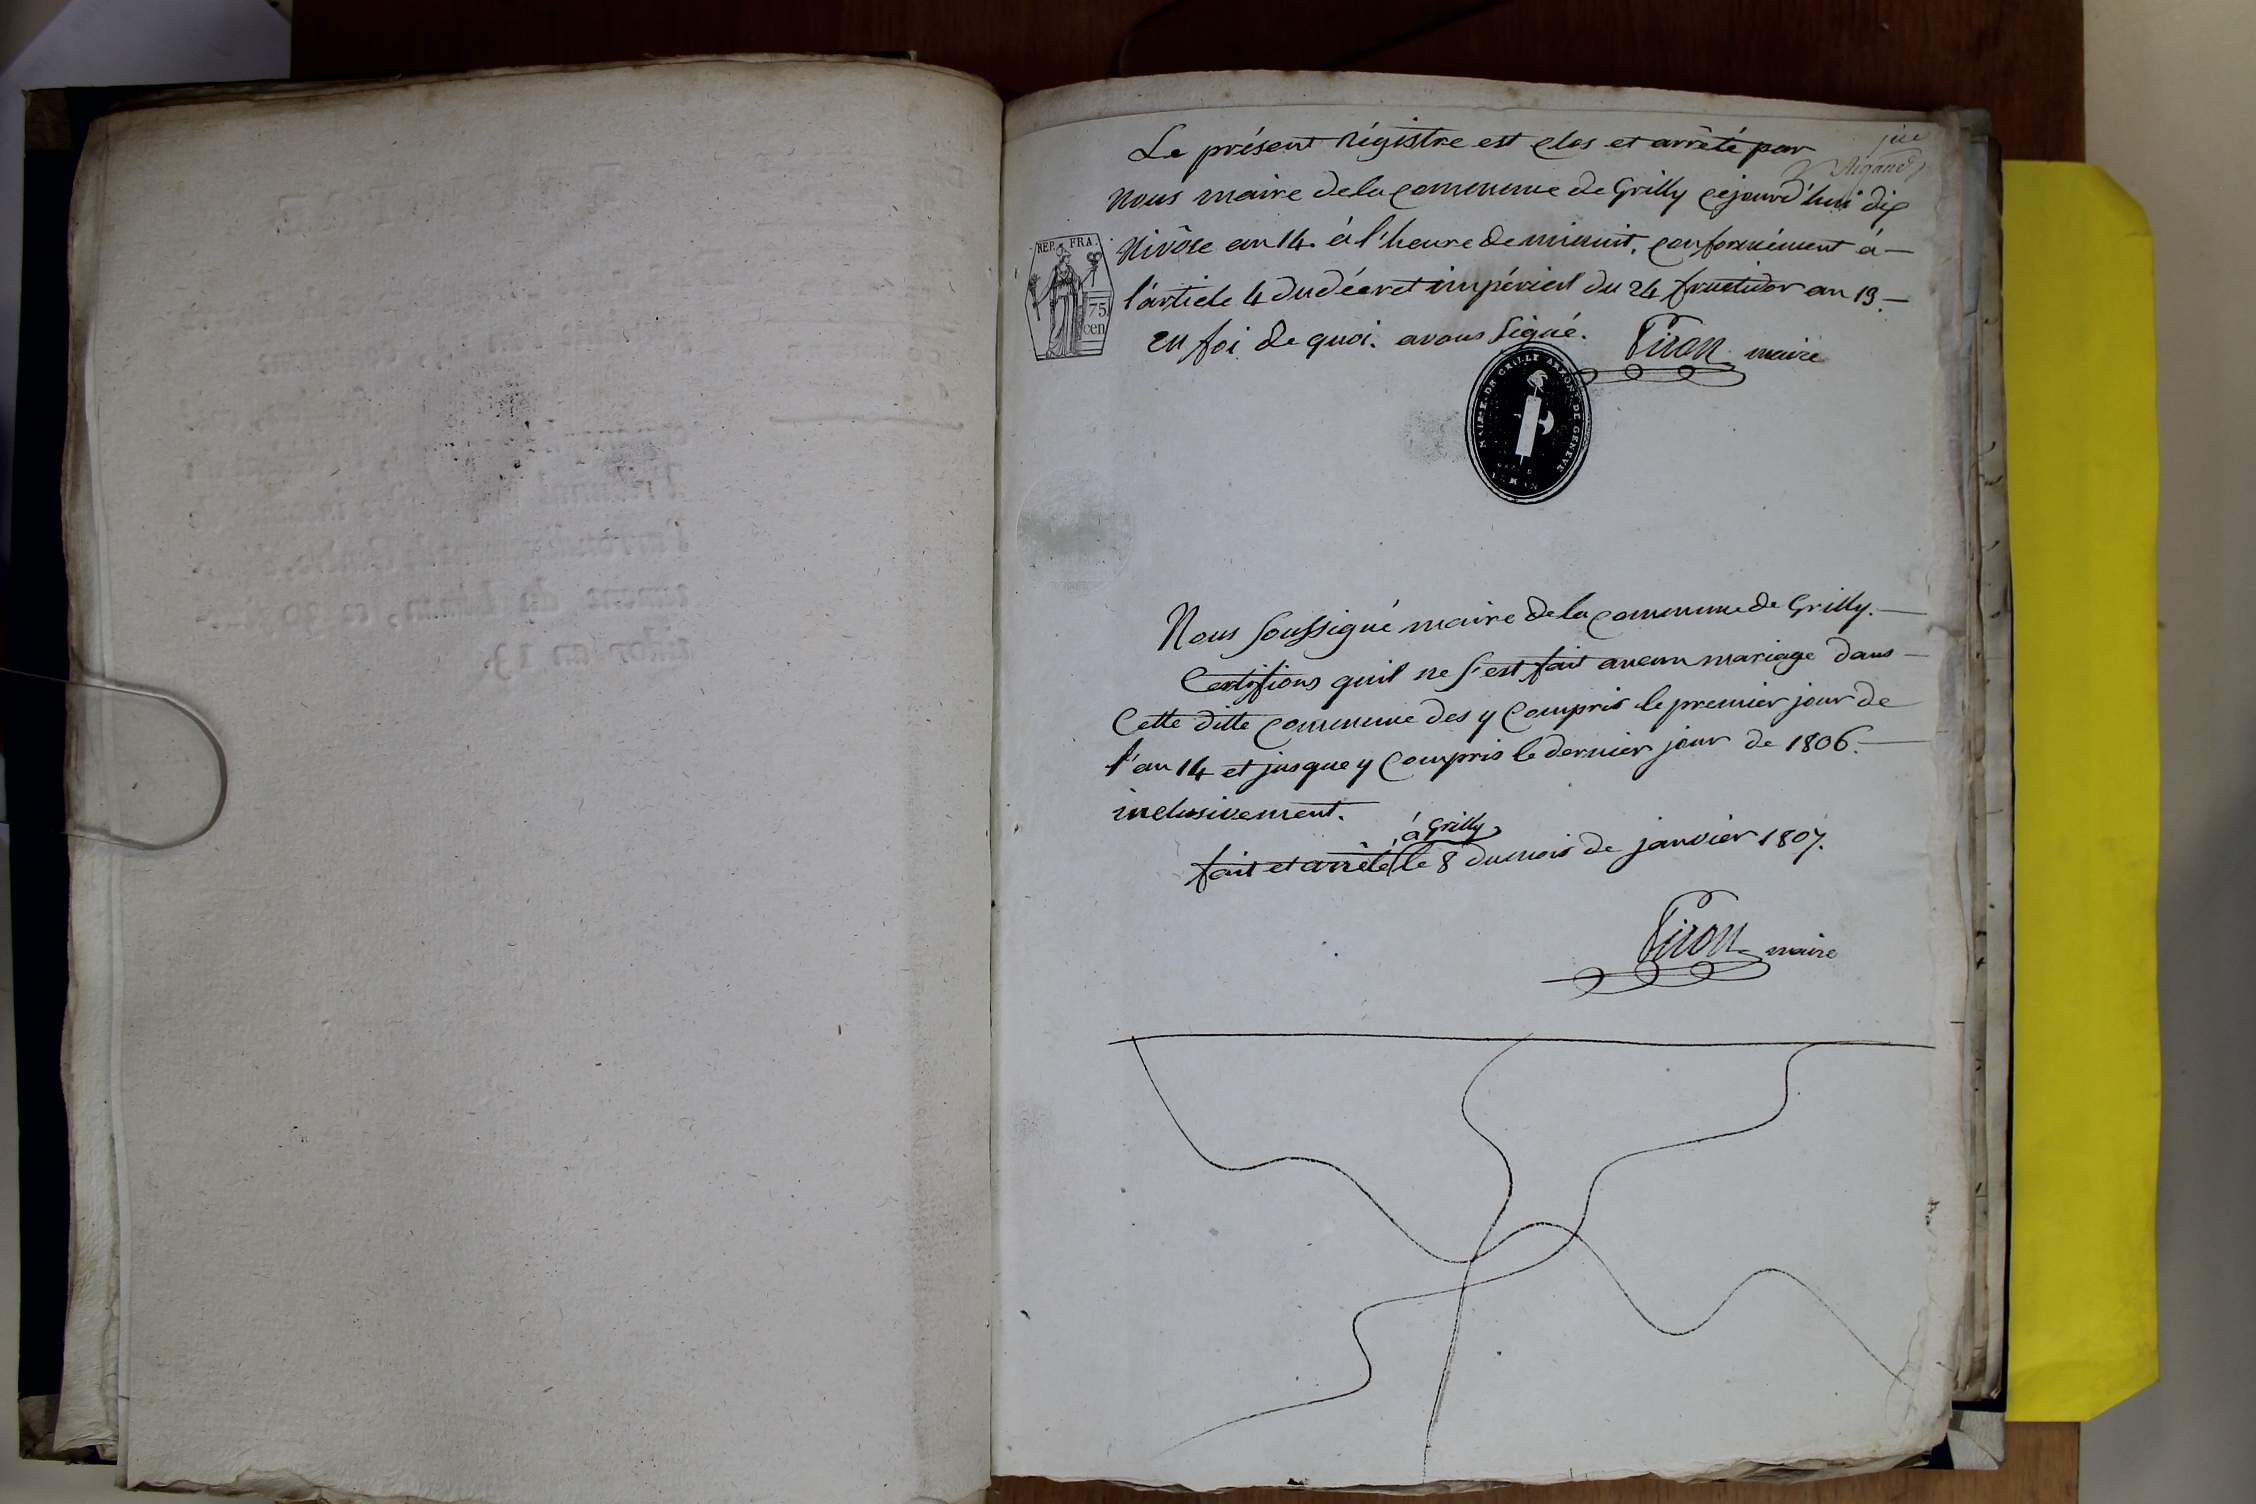 Le présent Régistre est clos et arrêté par
nous maire de la commune de Grilly cejourd'hui dix
Nivôse an 14. à l'heure de minuit, conformément à
l'article 4 du décret impérial du 24 fructidor an 13.
en foi de quoi. avons signé. Piron maire
REP. FRA.
75
cen
MAIRIE DE GRILLY ARRON. DE GENEVE
LEMAN
Nous soussigné maire de la commune de Grilly.
Certifions quil ne s'est fait aucun mariage dans
Cette ditte commune des y compris le premier jour de
l'an 14 et jusque y compris le dernier jour de 1806.
inclusivement.
à Grilly
fait et arrêté le 8 du mois de janvier 1807.
Piron maire